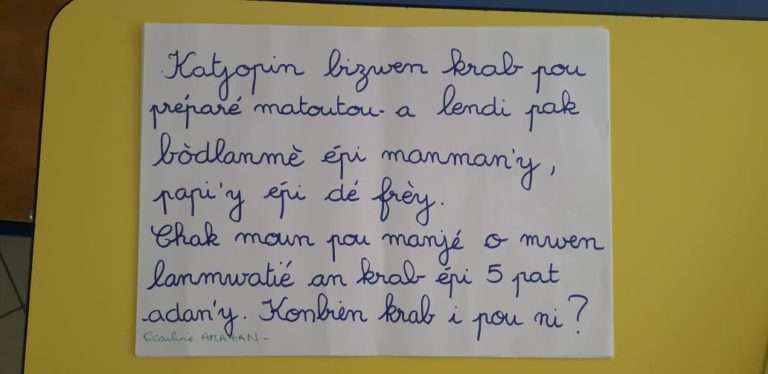 Katjopin bizwen krab pou
préparé matoutou-a lendi pak
bòdlanmè épi manman'y,
papi'y épi dé frèy.
Chak moun pou manjé o mwen
lanmwatié an krab épi 5 pat
adan'y. Konbièn krab i pou ni?